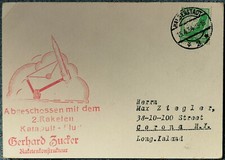 Abgeschossen mit dem
2.Raketen
Katapult-Flug
Gerhard Zucker
Raketenkonstrukteur
Herrn
Max Ziegler,
38-10-100 Street
Corona N.Y.
Long.Island